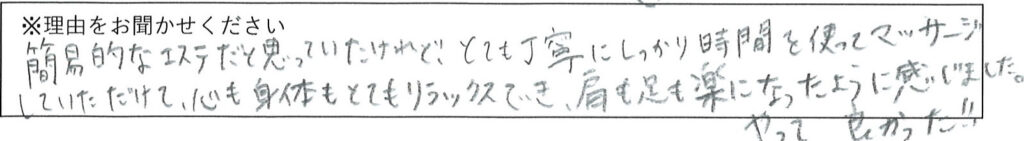 ※理由をお聞かせください
簡易的なエステだと思っていたけれど、とても丁寧にしっかり時間を使ってマッサージ
していただけて、心も身体もとてもリラックスでき、肩も足も楽になったように感じました。
やって良かった!!